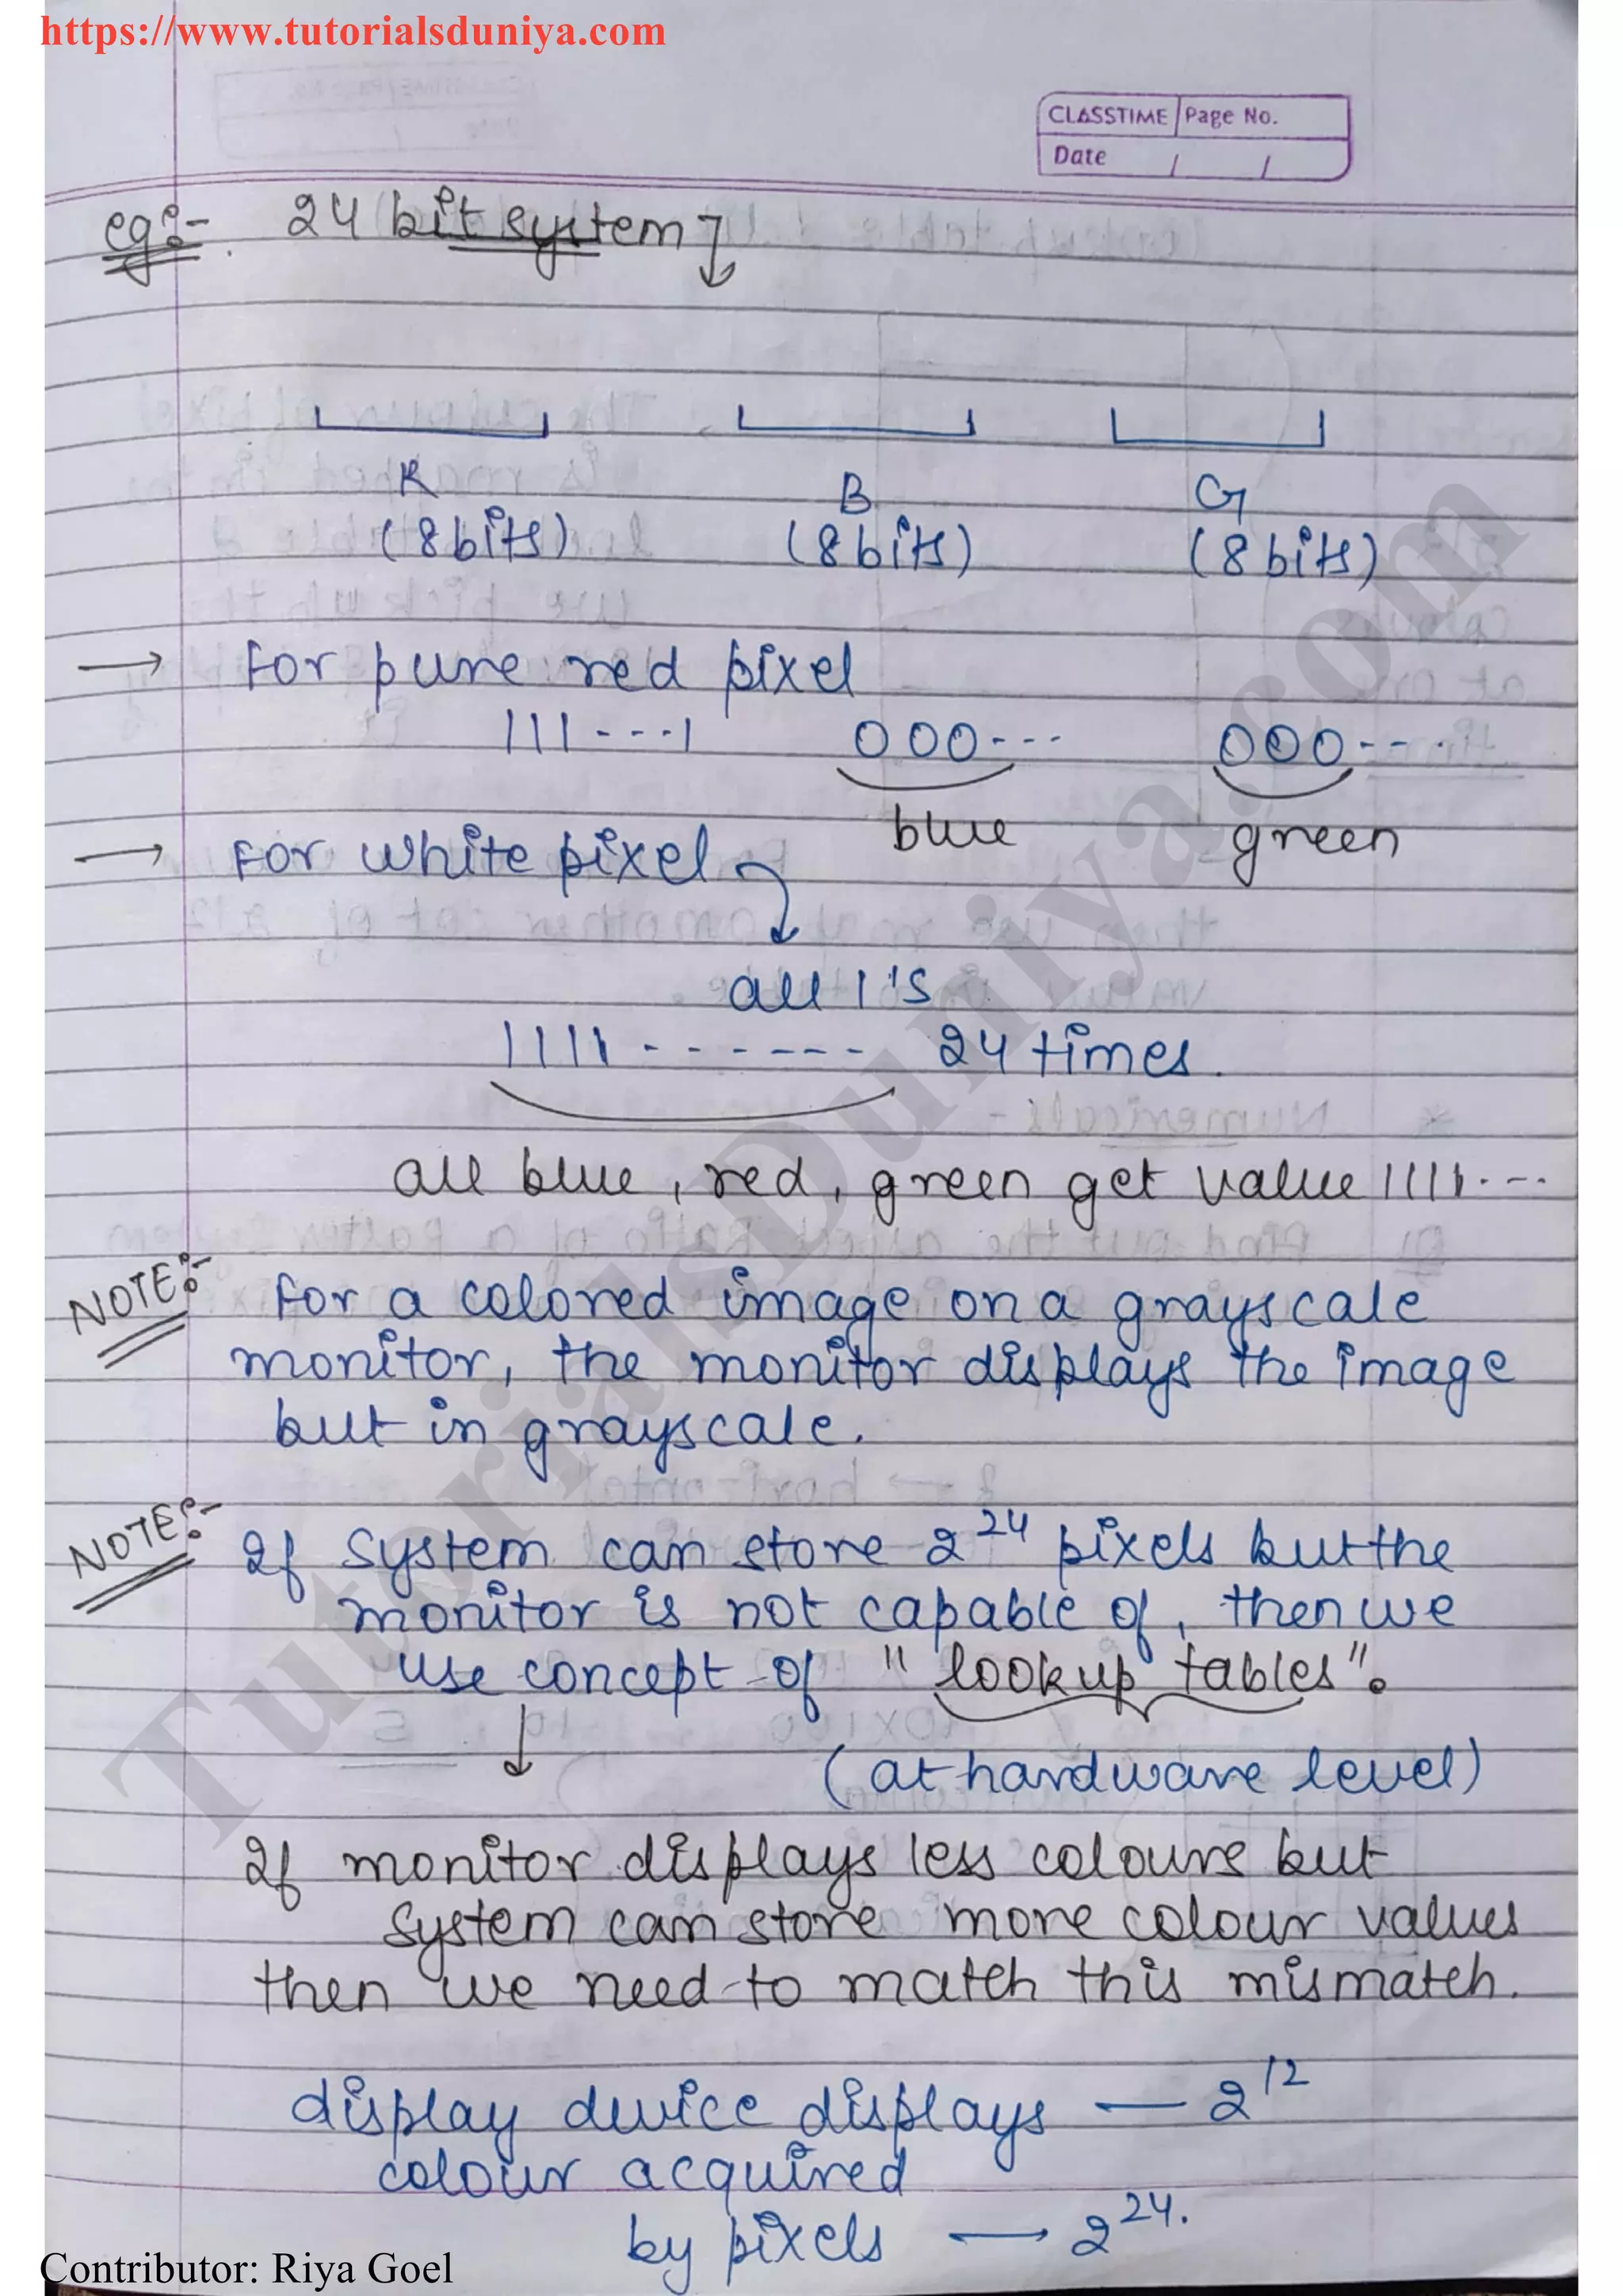 https://www.tutorialsduniya.com
CLASSTIME Page No.
Date / /
eg:- 24 bit system
R B G
(8 bits) (8 bits) (8 bits)
→ For pure red pixel
111---1 000--- 000----
blue green
→ For white pixel
all 1's
1111------- 24 times.
all blue, red, green get value 1111---
NOTE:- For a colored image on a grayscale
monitor, the monitor displays the image
but in grayscale.
NOTE:- If system can store 2^24 pixels but the
monitor is not capable of, then we
use concept of "lookup tables".
(at hardware level)
If monitor displays less colours but
system can store more colour values
then we need to match this mismatch.
display device displays — 2^12
colour acquired
by pixels — 2^24.
TutorialsDuniya.com
Contributor: Riya Goel